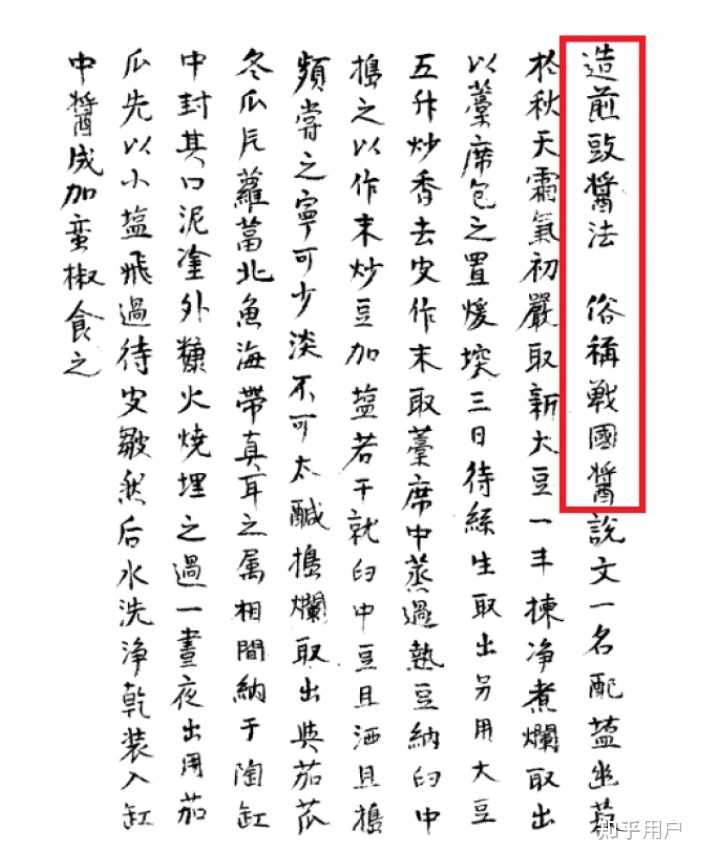 造煎豉醬法 俗稱戰國醬說文一名配𥂁幽菽
於秋天霜氣初嚴取新大豆一斗揀净煮爛取出
以藁席包之置煖堗三日待絲生取出另用大豆
五升炒香去皮作末取藁席中蒸過熟豆納臼中
搗之以作末炒豆加塩若干就臼中豆且洒且搗
頻嘗之寧可少淡不可太醎搗爛取出與茄苽
冬瓜片蘿葍北魚海帶真耳之属相間納于陶缸
中封其口泥塗外糠火燒埋之過一晝夜出用茄
瓜先以小塩飛過待皮皺然后水洗浄乾装入缸
中醬成加蛮椒食之
知乎用户